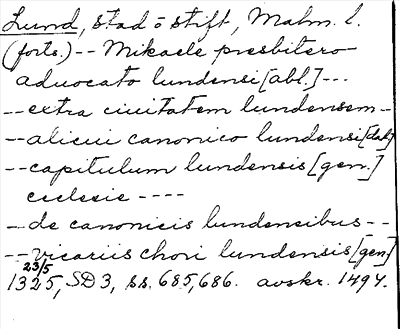 Lund, stad o stift, Malm. l.
(forts.) -- Mikaele presbitero
aduocato lundensi [abl.] ---
-- extra ciuitatem lundensem -
-- alicui canonico lundensi [dat.]
-- capitulum lundensis [gen.]
ecclesie ----
- de canonicis lundensibus --
-- vicariis chori lundensis [gen.]
23/5
1325, SD 3, ss. 685, 686. avskr. 1494.